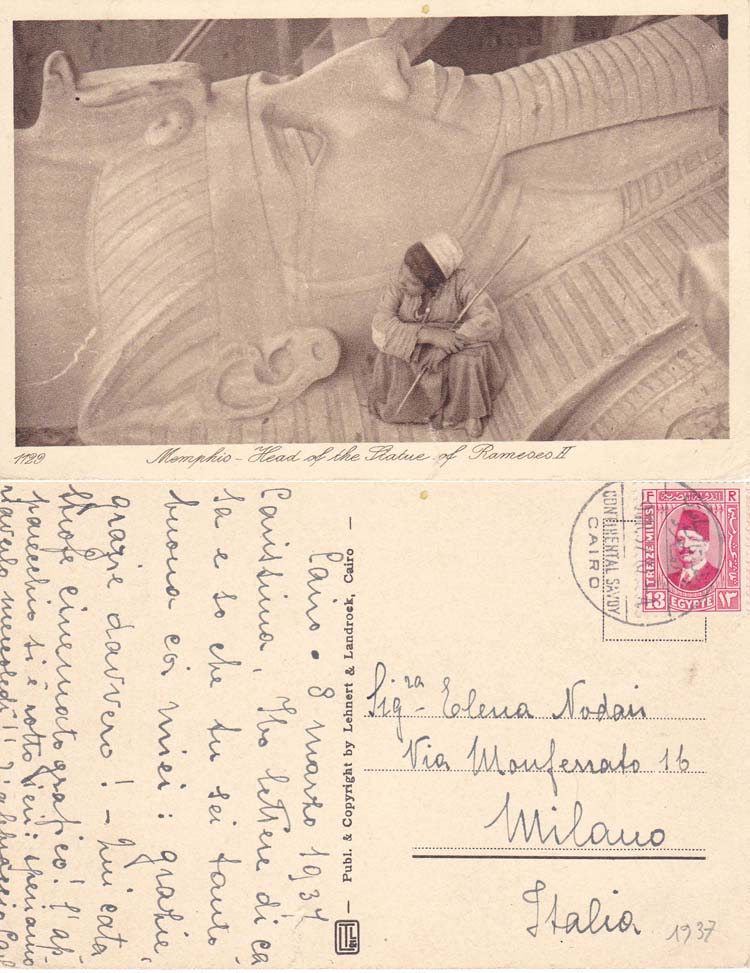 1129 Memphis - Head of the Statue of Rameses II
Cairo · 8 marzo 1937
Carissima, Ho lettere di ca
sa e so che tu sei tanto
buona coi miei: grazie
grazie davvero! - Qui cata
strofe cinematografico! L'ap-
parecchio si è rotto ieri: speriamo
riaverlo mercoledì!!
— Publ. & Copyright by Lehnert & Landrock, Cairo —
CONTINENTAL SAVOY
CAIRO
F R
TREIZE MILLS
13 EGYPTE ١٣
Sig.ra Elena Nodari
Via Monferrato 16
Milano
Italia
1937